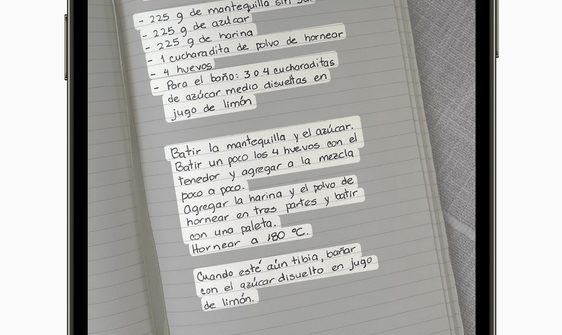 - 225 g de mantequilla sin sal
- 225 g de azúcar
- 225 g de harina
- 1 cucharadita de polvo de hornear
- 4 huevos
- Para el baño: 3 o 4 cucharaditas
de azúcar medio disueltas en
jugo de limón
Batir la mantequilla y el azúcar.
Batir un poco los 4 huevos con el
tenedor y agregar a la mezcla
poco a poco.
Agregar la harina y el polvo de
hornear en tres partes y batir
con una paleta.
Hornear a 180 °C.
Cuando esté aún tibia, bañar
con el azúcar disuelto en jugo
de limón.